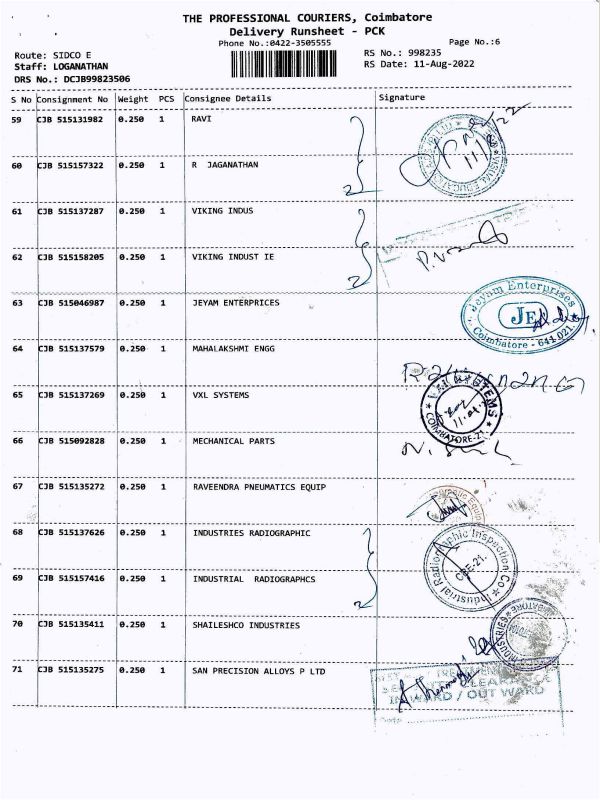 THE PROFESSIONAL COURIERS, Coimbatore
Delivery Runsheet - PCK
Phone No.:0422-3505555
Page No.:6
Route: SIDCO E
RS No.: 998235
Staff: LOGANATHAN
RS Date: 11-Aug-2022
DRS No.: DCJB99823506
S No Consignment No Weight PCS Consignee Details Signature
59 CJB 515131982 0.250 1 RAVI
60 CJB 515157322 0.250 1 R JAGANATHAN
2
61 CJB 515137287 0.250 1 VIKING INDUS
62 CJB 515158205 0.250 1 VIKING INDUST IE
2
63 CJB 515046987 0.250 1 JEYAM ENTERPRICES
Jeyam Enterprises
JE
Coimbatore - 641 021.
64 CJB 515137579 0.250 1 MAHALAKSHMI ENGG
65 CJB 515137269 0.250 1 VXL SYSTEMS
COIMBATORE-21
66 CJB 515092828 0.250 1 MECHANICAL PARTS
67 CJB 515135272 0.250 1 RAVEENDRA PNEUMATICS EQUIP
68 CJB 515137626 0.250 1 INDUSTRIES RADIOGRAPHIC
69 CJB 515157416 0.250 1 INDUSTRIAL RADIOGRAPHCS
2
Industrial Radiographic Inspection Co
CBE-21.
70 CJB 515135411 0.250 1 SHAILESHCO INDUSTRIES
INDUSTRIES
71 CJB 515135275 0.250 1 SAN PRECISION ALLOYS P LTD
IN WARD / OUT WARD